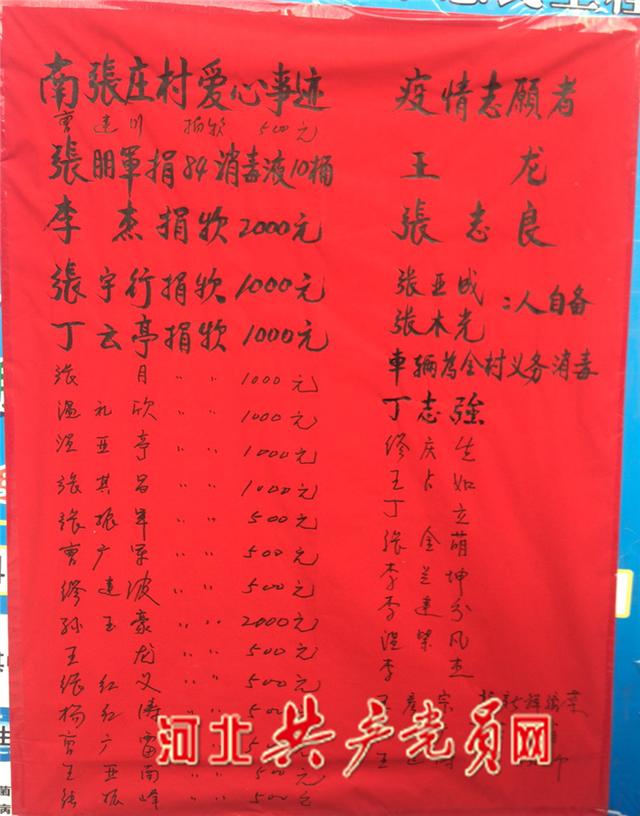 南張庄村爱心事迹
曹建川 捐款 500元
張朋軍捐84消毒液10桶
李杰捐款2000元
張宇行捐款1000元
丁云亭捐款1000元
張月 〃 〃 1000元
温礼欣 〃 〃 1000元
温亚亭 〃 〃 1000元
張其昌 〃 〃 1000元
張振军 〃 〃 500元
曹广军 〃 〃 500元
缪建波 〃 〃 500元
孙玉豪 〃 〃 2000元
王龙 〃 〃 500元
張红义 〃 〃 500元
杨红涛 〃 〃
曹广雷
王亚南 〃 〃 500元
張振峰 〃 〃 500元
疫情志願者
王龙
張志良
张亚成
张木光
二人自备
車辆為全村义务消毒
丁志強
缪庆生
王占如
丁立
張金萌
李兰坤
李建分
温荣凤
李杰
河北共产党员网